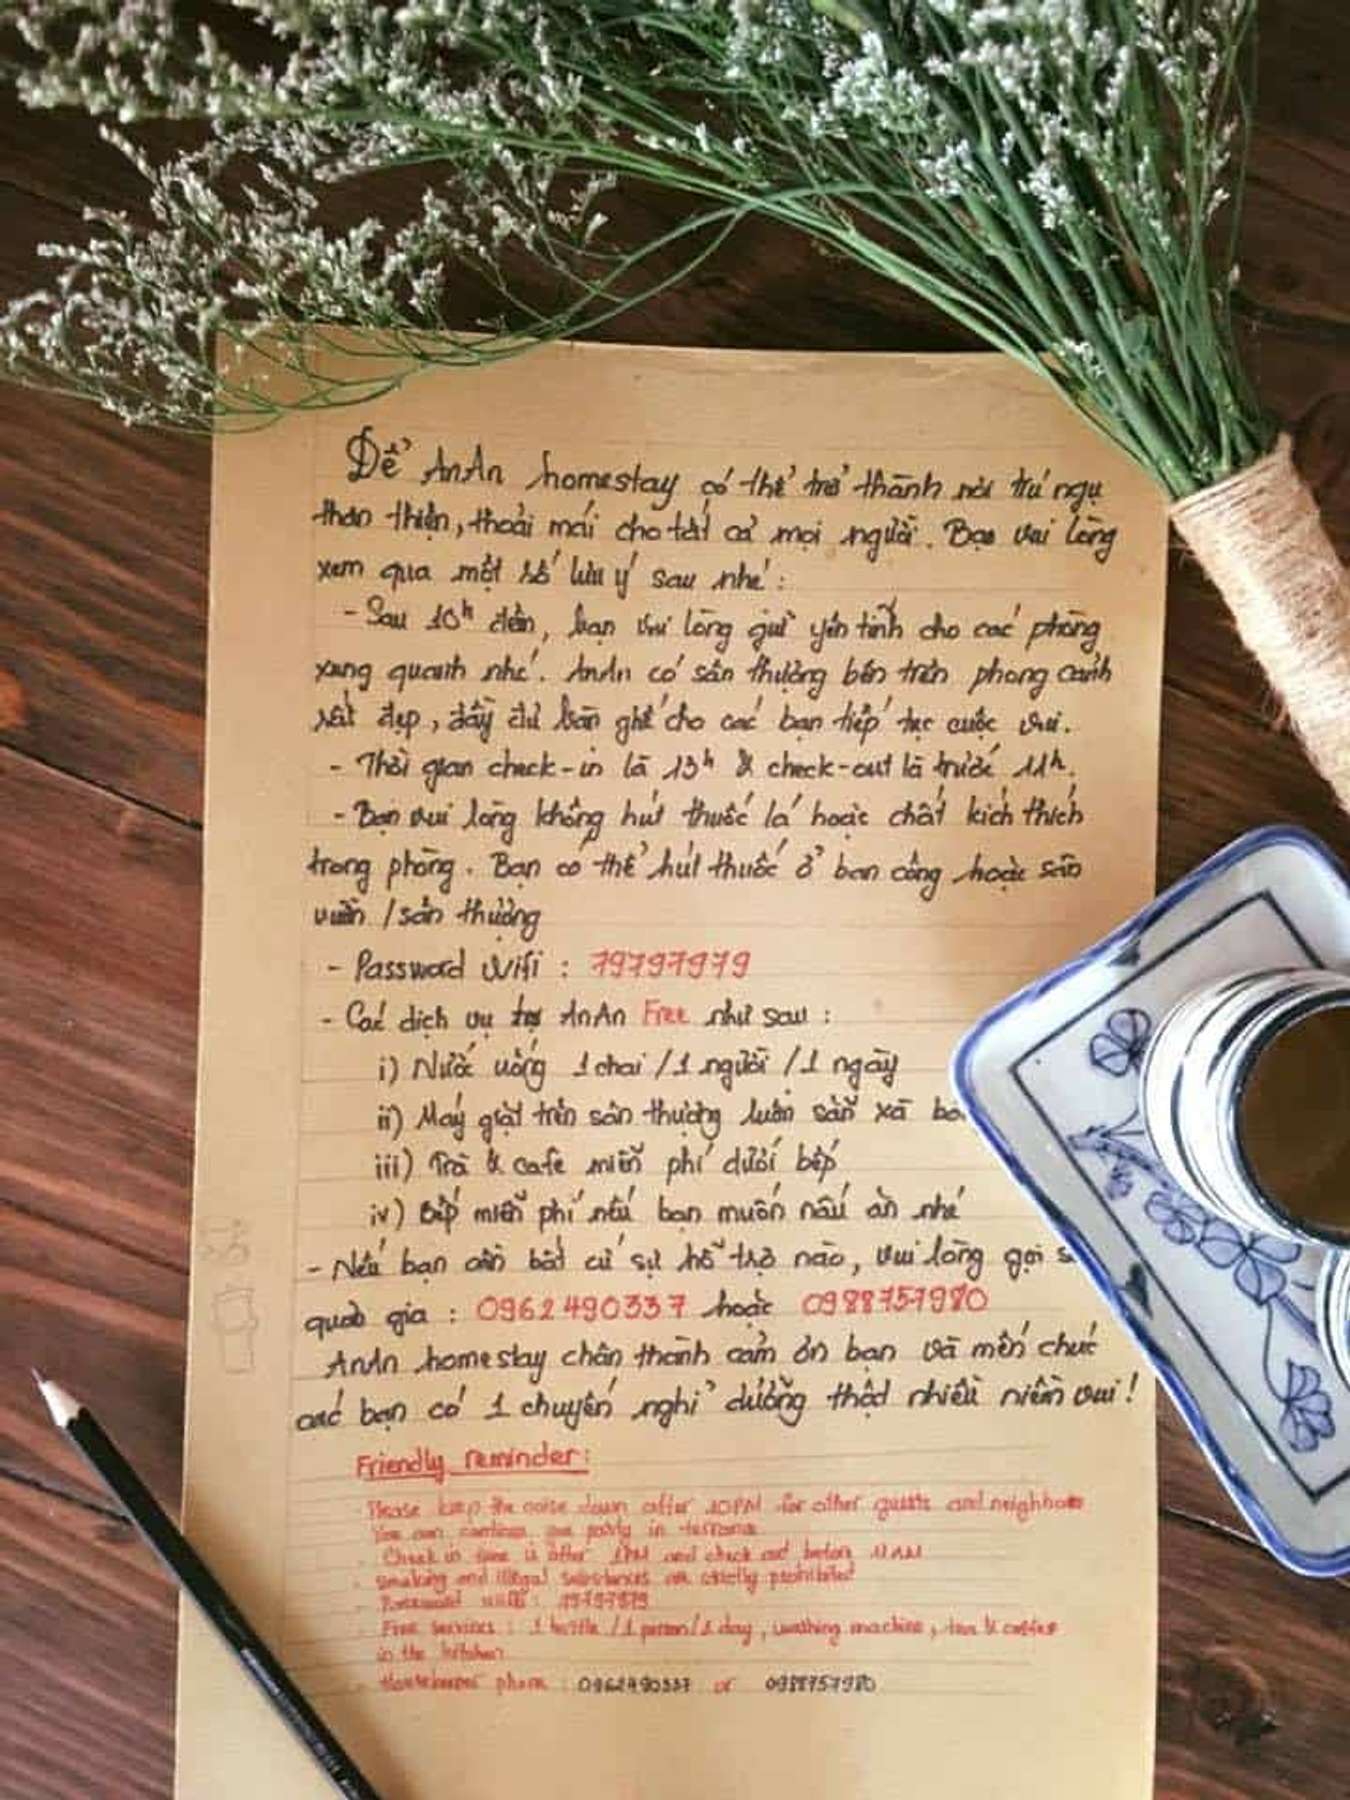 Để AnAn homestay có thể trở thành nơi trú ngụ
thân thiện, thoải mái cho tất cả mọi người. Bạn vui lòng
xem qua một số lưu ý sau nhé:
- Sau 10h đêm, bạn vui lòng giữ yên tĩnh cho các phòng
xung quanh nhé. AnAn có sân thượng bên trên phong cảnh
rất đẹp, đầy đủ bàn ghế cho các bạn tiếp tục cuộc vui.
- Thời gian check-in là 13h & check-out là trước 11h.
- Bạn vui lòng không hút thuốc lá hoặc chất kích thích
trong phòng. Bạn có thể hút thuốc ở ban công hoặc sân
vườn / sân thượng
- Password Wifi : 79797979
- Các dịch vụ tại AnAn Free như sau :
i) Nước uống 1 chai / 1 người / 1 ngày
ii) Máy giặt trên sân thượng luôn sẵn xà
iii) Trà & cafe miễn phí dưới bếp
iv) Bếp miễn phí nếu bạn muốn nấu ăn nhé
- Nếu bạn cần bất cứ sự hỗ trợ nào, vui lòng gọi
quản gia : 0962490337 hoặc 0988757980
AnAn homestay chân thành cảm ơn bạn và mến chúc
các bạn có 1 chuyến nghỉ dưỡng thật nhiều niềm vui!
Friendly reminder:
Please keep the noise down after 10PM for other guests and neighbors
You can continue your party in terrace
- Check in time is after 1PM and check out before 11AM
- Smoking and illegal substances are strictly prohibited
- Password wifi : 79797979
- Free services : 1 bottle / 1 person / 1 day, washing machine, tea & coffee
in the kitchen
- Housekeeper phone : 0962490337 or 0988757980